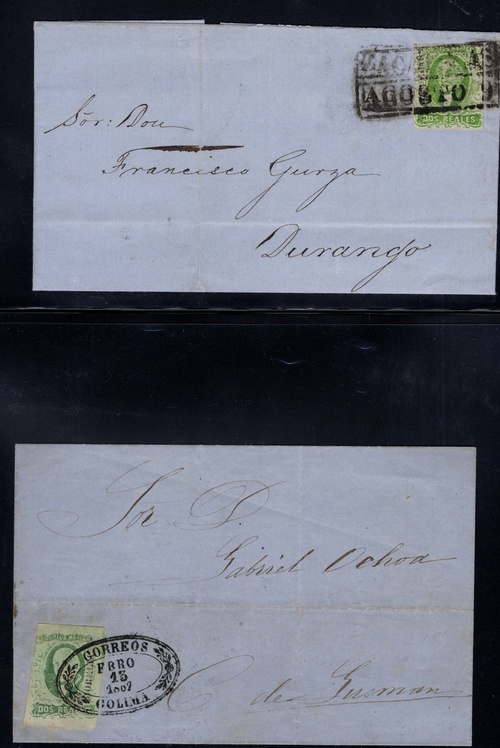 AGOSTO
DOS REALES
Sõr: Don
Francisco Gurza
Durango
Sor D.
Gabriel Ochoa
C de Gusman
CORREOS
FBRO
13
COLIMA
DOS REALES